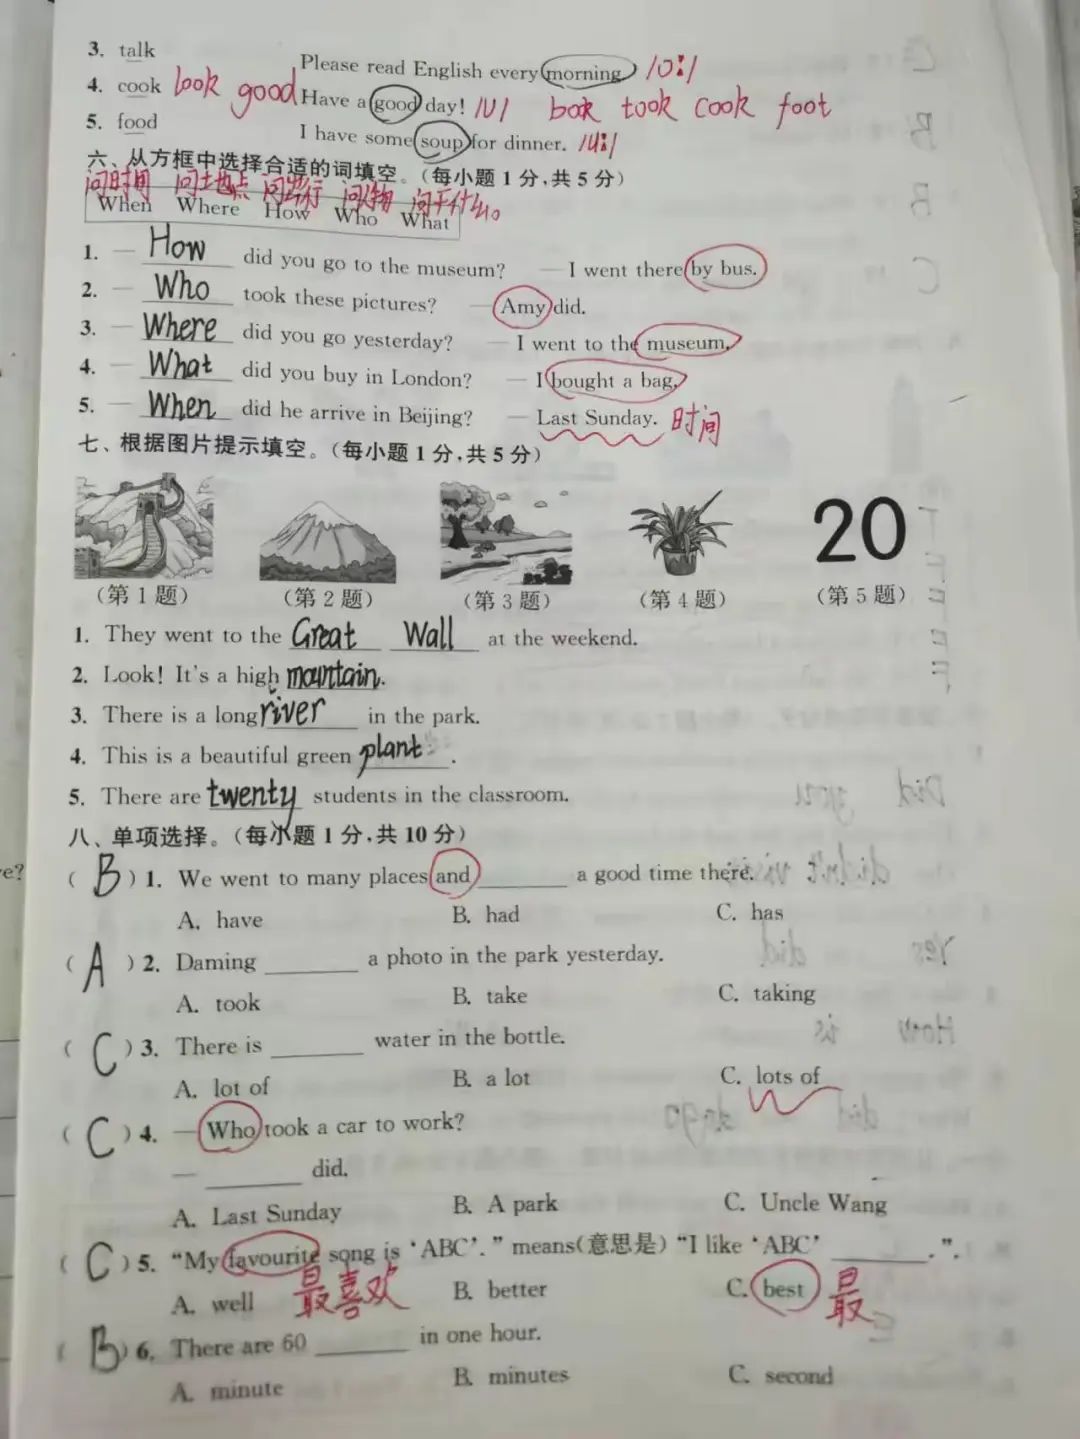 3. talk
Please read English every morning. /ɔ:/
4. cook look good
Have a good day! /ʊ/ book took cook foot
5. food
I have some soup for dinner. /u:/
六、从方框中选择合适的词填空。(每小题 1 分,共 5 分)
问时间 问地点 问出行 问人物 问干什么
When Where How Who What
1. — How did you go to the museum? — I went there by bus.
2. — Who took these pictures? — Amy did.
3. — Where did you go yesterday? — I went to the museum.
4. — What did you buy in London? — I bought a bag.
5. — When did he arrive in Beijing? — Last Sunday. 时间
七、根据图片提示填空。(每小题 1 分,共 5 分)
20
(第 1 题) (第 2 题) (第 3 题) (第 4 题) (第 5 题)
1. They went to the Great Wall at the weekend.
2. Look! It's a high mountain.
3. There is a long river in the park.
4. This is a beautiful green plant.
5. There are twenty students in the classroom.
八、单项选择。(每小题 1 分,共 10 分)
( B ) 1. We went to many places and ______ a good time there.
A. have B. had C. has
( A ) 2. Daming ______ a photo in the park yesterday.
A. took B. take C. taking
( C ) 3. There is ______ water in the bottle.
A. lot of B. a lot C. lots of
( C ) 4. — Who took a car to work?
— ______ did.
A. Last Sunday B. A park C. Uncle Wang
( C ) 5. “My favourite song is ‘ABC’.” means(意思是) “I like ‘ABC’ ______.”.
最喜欢
A. well B. better C. best 最
( B ) 6. There are 60 ______ in one hour.
A. minute B. minutes C. second